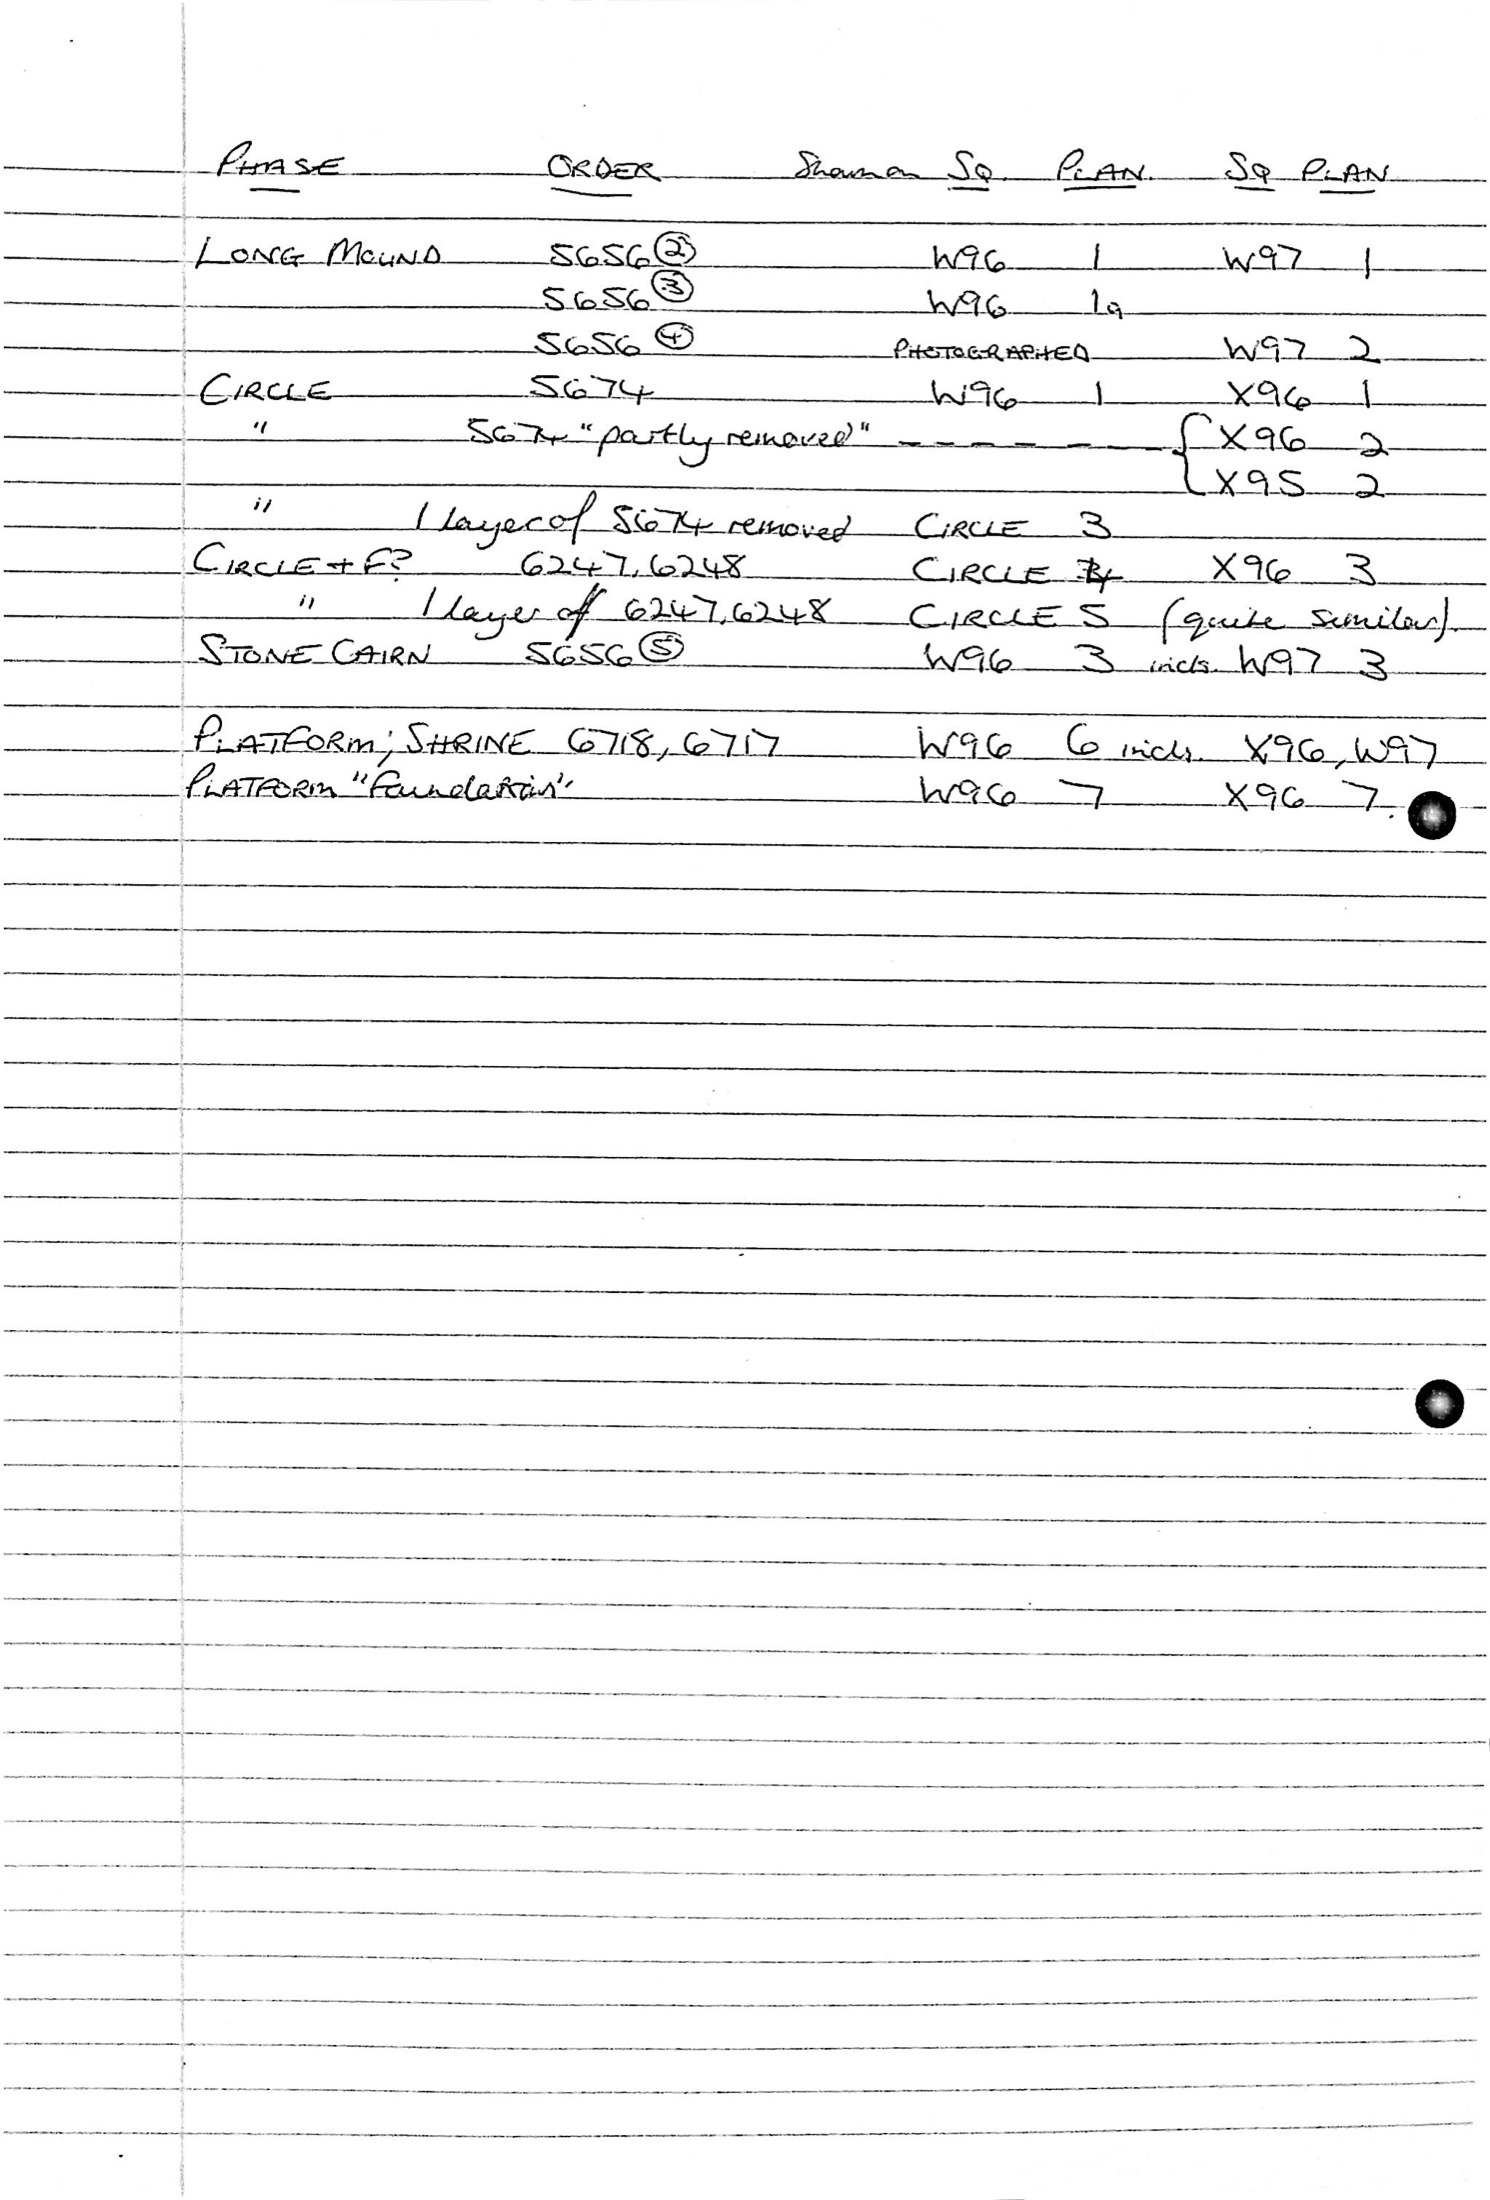 PHASE ORDER Shown on SQ. PLAN. SQ PLAN
LONG MOUND 5656 ② W96 1 W97 1
5656 ③ W96 1a
5656 ④ PHOTOGRAPHED W97 2
CIRCLE 5674 W96 1 X96 1
" 5674 "partly removed" - - - - - - { X96 2
X95 2
" 1 layer of 5674 removed CIRCLE 3
CIRCLE + F? 6247, 6248 CIRCLE 4 X96 3
" 1 layer of 6247, 6248 CIRCLE 5 (quite similar).
STONE CAIRN 5656 ⑤ W96 3 incls. W97 3
PLATFORM; SHRINE 6718, 6717 W96 6 incls. X96, W97
PLATFORM "foundation" W96 7 X96 7.